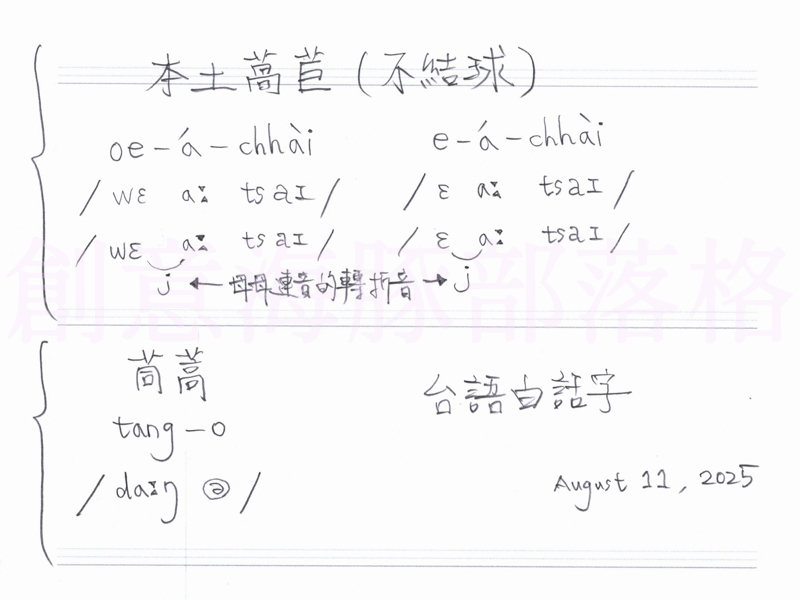 本土萵苣(不結球)
oe-á-chhài e-á-chhài
/wɛ aː tsaɪ/ /ɛ aː tsaɪ/
/wɛ aː tsaɪ/ /ɛ aː tsaɪ/
j ←母母連音的轉折音→ j
創意海豚部落格
茼蒿
台語白話字
tang-o
/daːŋ ə/
August 11, 2025